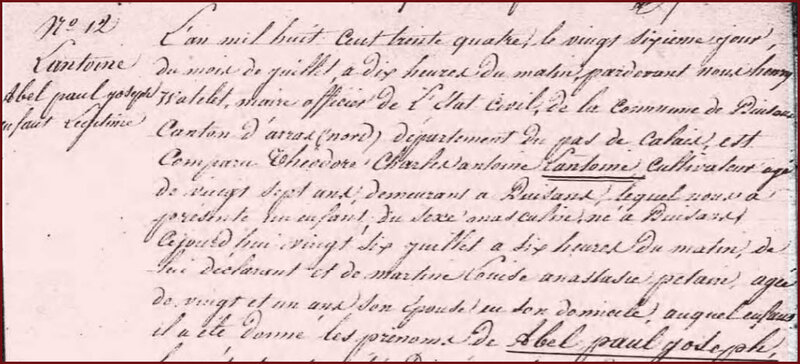 N.o 12
Lantoine
Abel paul joseph
enfant Legitime
L'an mil huit cent trente quatre, le vingt sixieme jour,
du mois de juillet, a dix heures du matin, pardevant nous henry
Watelet, maire officier de L'Etat Civil, de la Commune de Duisans
Canton d'arras (nord) département du pas de Calais, est
Comparu Théodore Charles antoine Lantoine Cultivateur agé
de vingt sept ans, demeurant a Duisans, lequel nous a
présenté un enfant du sexe masculin, né à Duisans,
Cejourd'hui vingt six juillet a six heures du matin, de
lui déclarant et de martine Louise anastasie petain, agée
de vingt et un ans son épouse en son domicile, auquel enfant
il a été donné les prénoms de Abel paul joseph